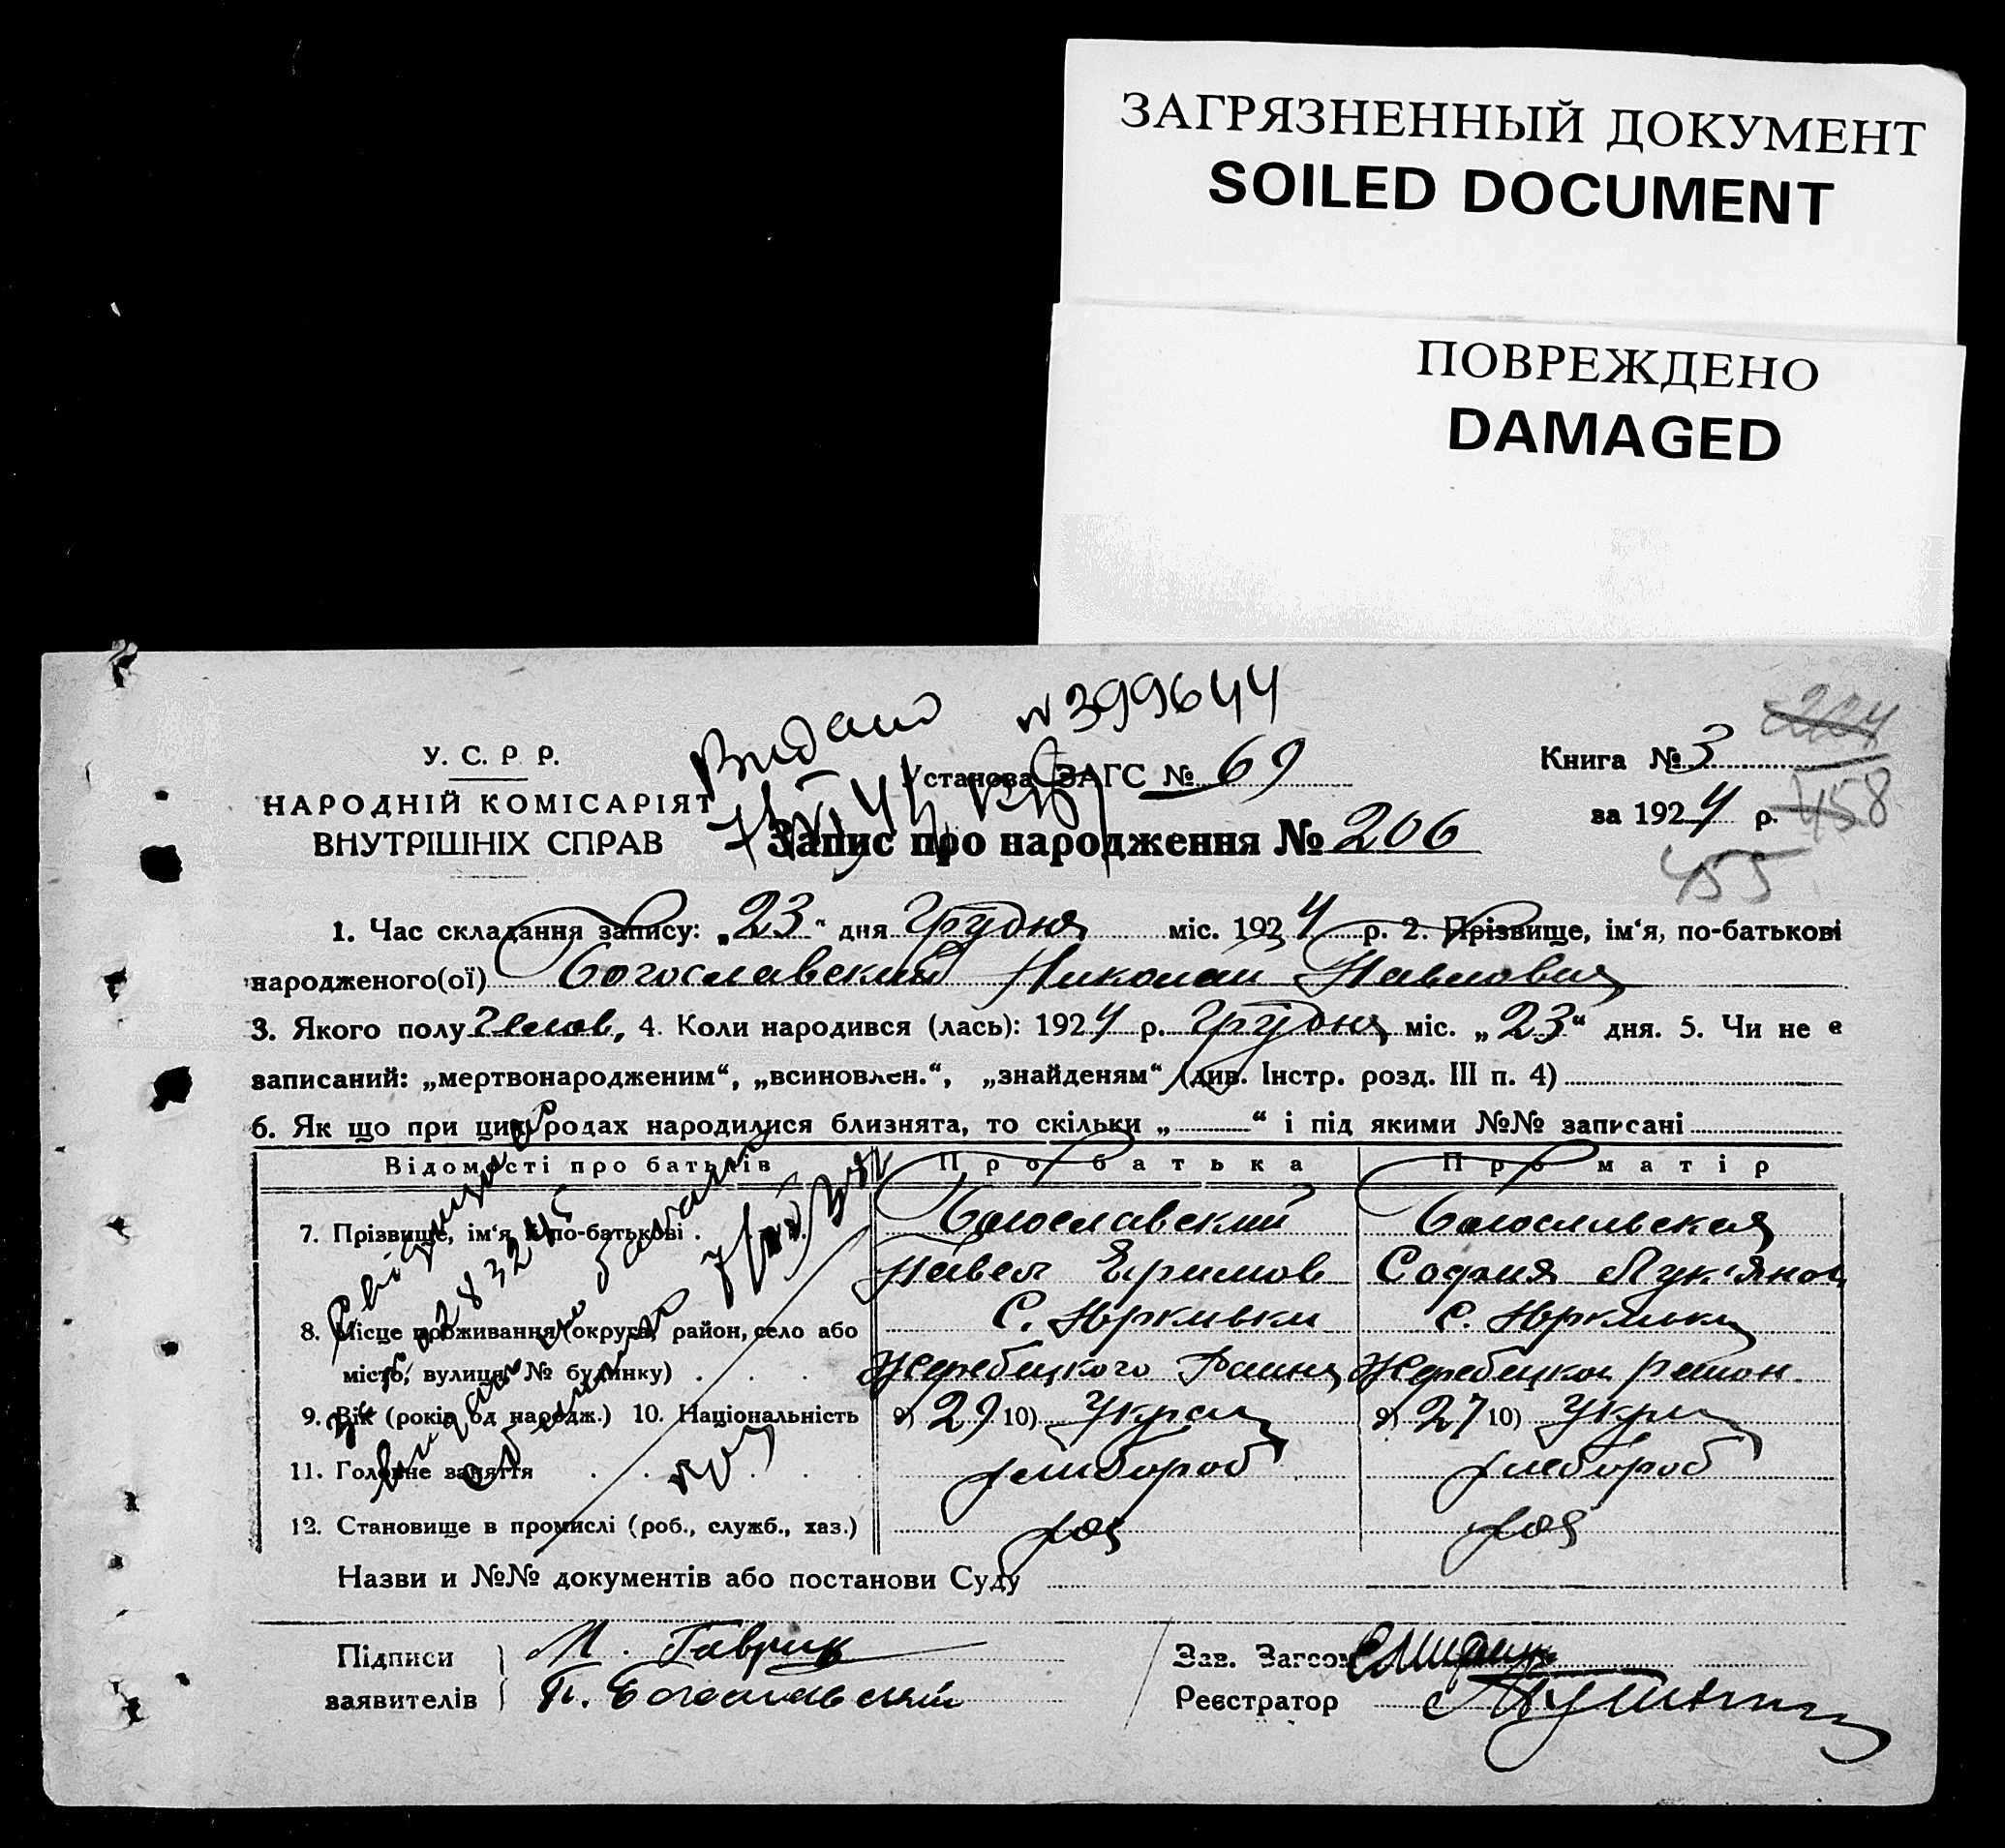 ЗАГРЯЗНЕННЫЙ ДОКУМЕНТ
SOILED DOCUMENT
ПОВРЕЖДЕНО
DAMAGED
Видано №399644
У. С. Р Р.
НАРОДНІЙ КОМІСАРІЯТ
ВНУТРІШНІХ СПРАВ
Установа ЗАГС № 69
Запис про народження № 206
Книга № 3
за 1924 р.
224
458
455
1. Час складання запису: „23" дня Грудня міс. 1924 р. 2. Прізвище, ім'я, по-батькові
народженого(ої) Богославский Николай Павлович
3. Якого полу Челов, 4. Коли народився (лась): 1924 р. Грудня міс. „23" дня. 5. Чи не є
записаний: „мертвонародженим", „всиновлен.", „знайденям" (див. Інстр. розд. III п. 4)
6. Як що при цих родах народилися близнята, то скільки „ " і під якими №№ записані
Відомості про батьків Про батька Про матір
7. Прізвище, ім'я й по-батькові . Богославский Богославская
Павел Ефимов София Лук'янов
8. Місце проживання (округа, район, село або С. Юркивки С. Юркивки
місто, вулиця, № будинку) . . . Жеребецкого Район Жеребецкой район.
9. Вік (років од народж.) 10. Національність 9) 29 10) Укра 9) 27 10) Укр
11. Головне заняття . . . . . хлибороб хлебороб
12. Становище в промислі (роб., служб., хаз.) хоз хоз
Назви и №№ документів або постанови Суду
Підписи М. Гаврик
заявителів П. Богославский
Зав. Загсом
Реєстратор